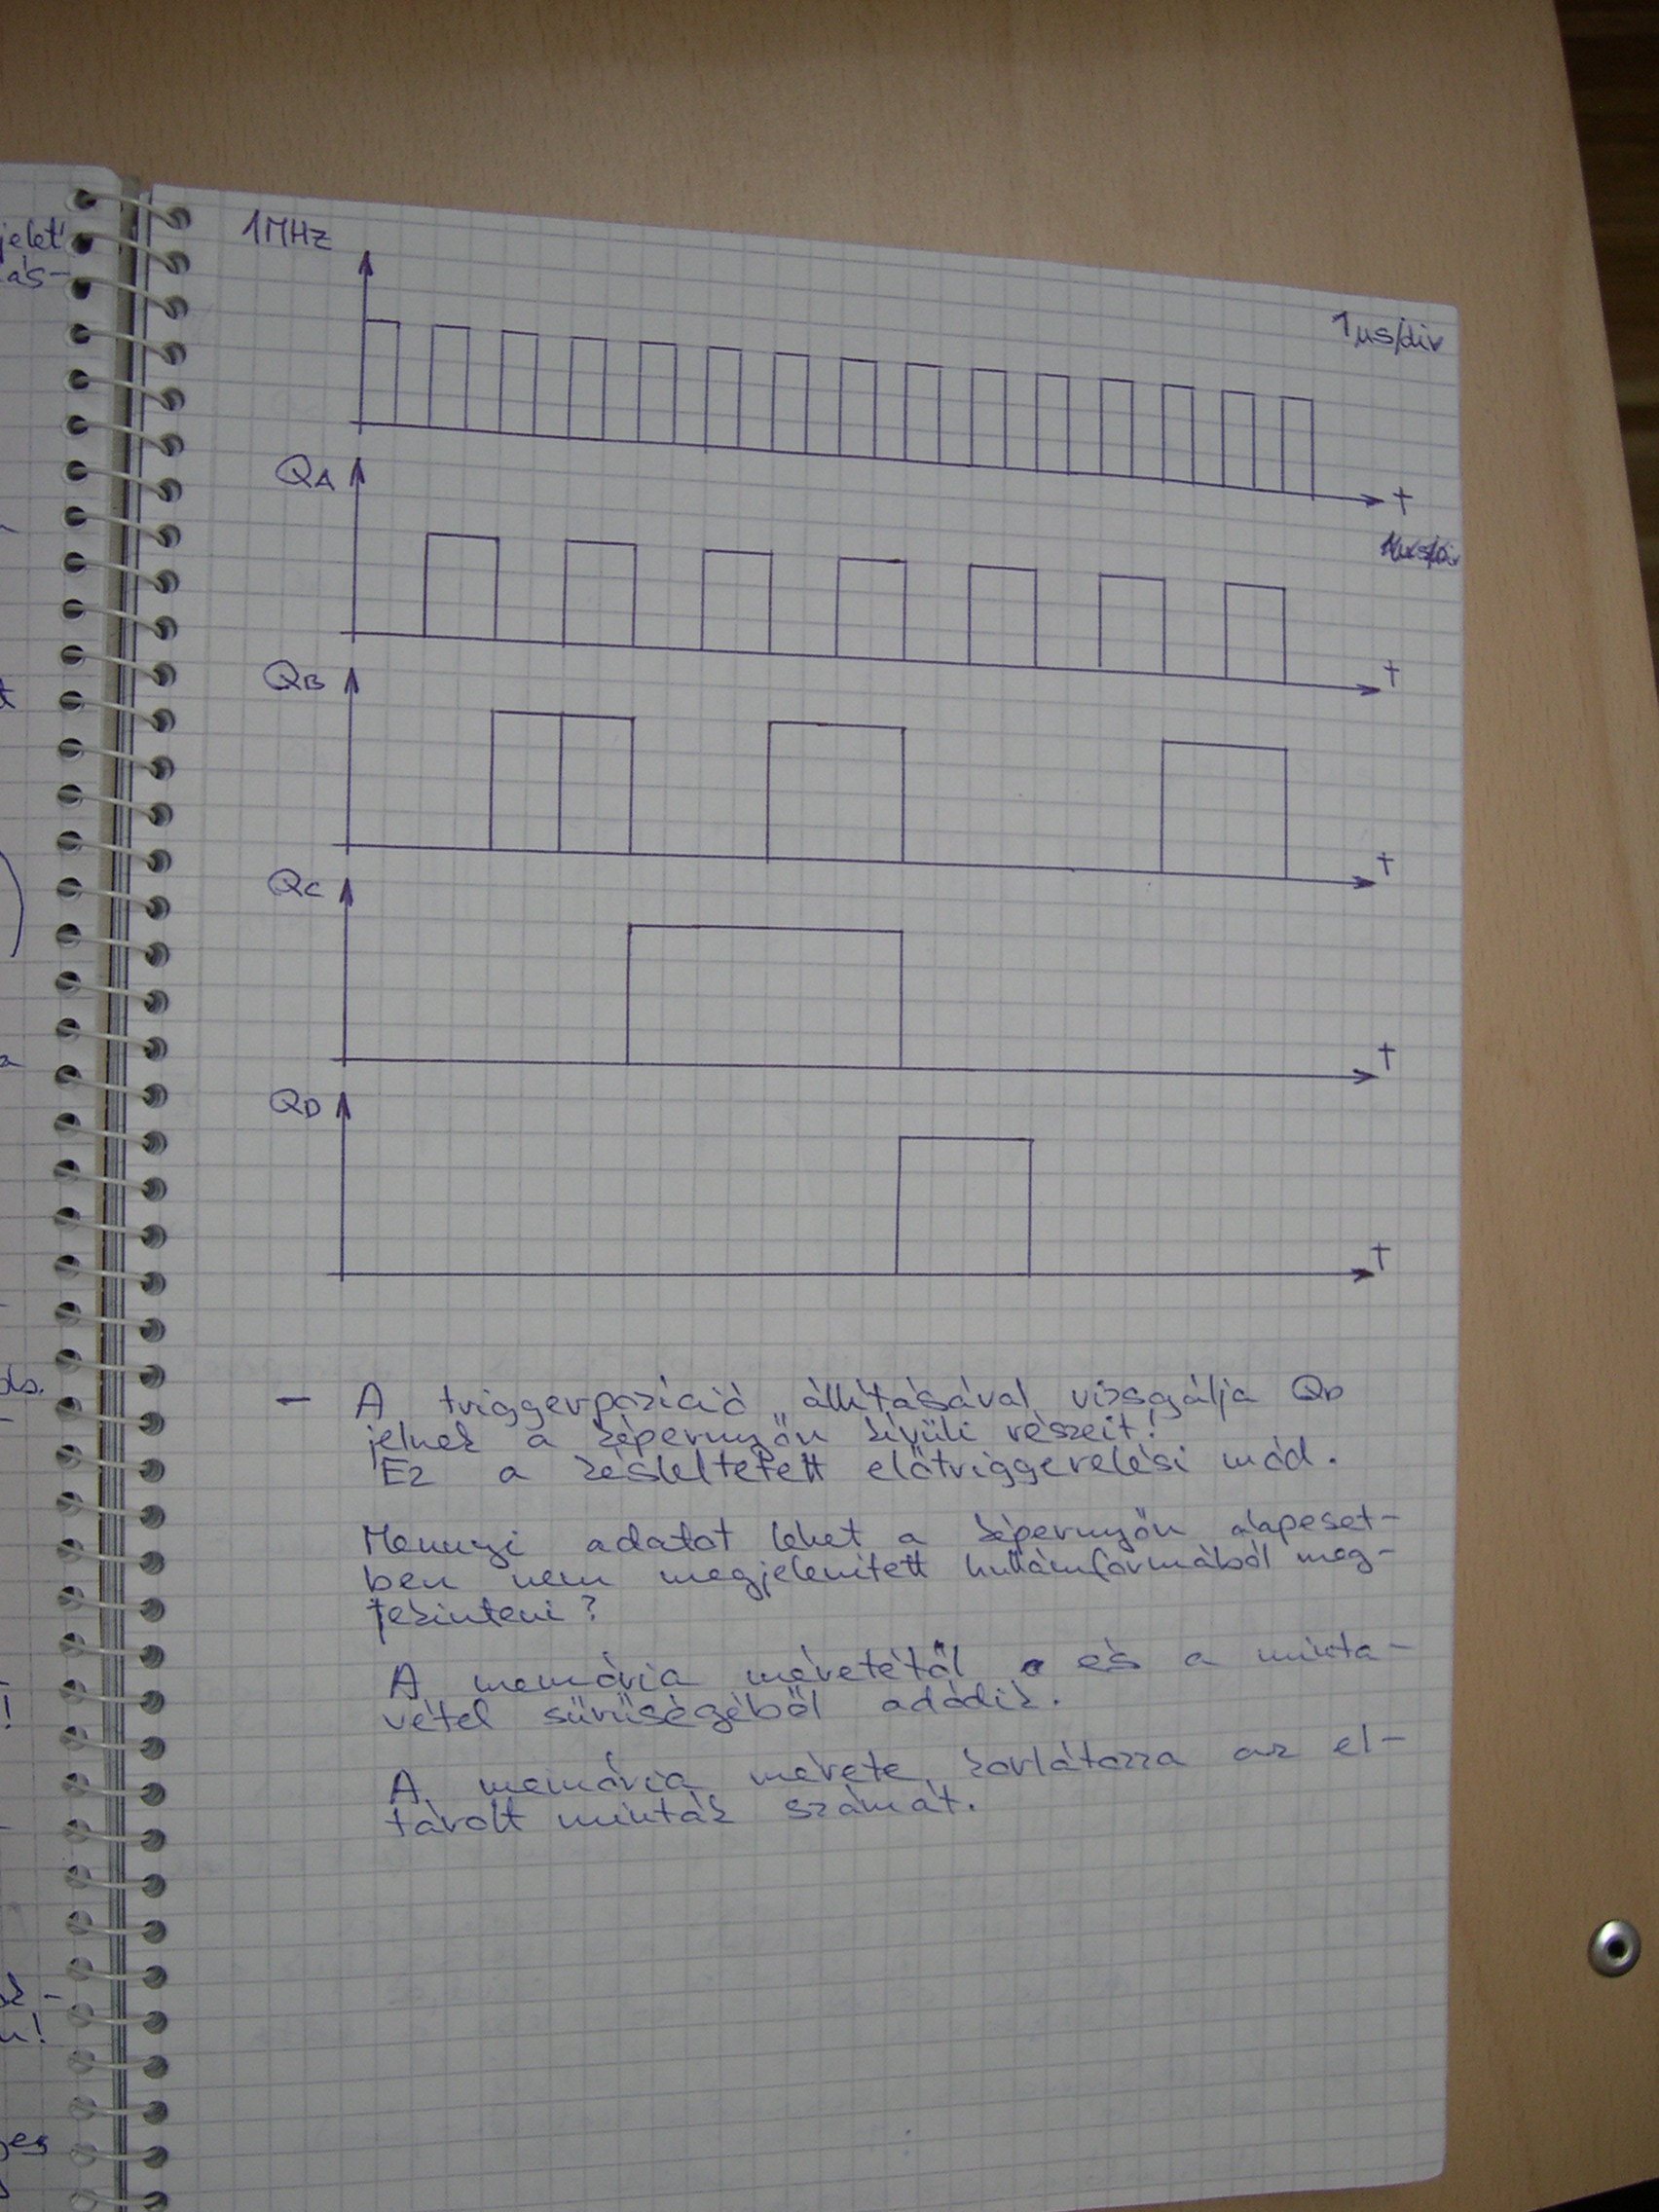 jelet
ás-
1MHz
1µs/div
t
QA
t
QB
t
QC
t
QD
t
- A triggerpozíció állításával vizsgálja QD
jelnek a képernyőn kívüli részeit!
Ez a késleltetett előtriggerelési mód.
Mennyi adatot lehet a képernyőn alapeset-
ben nem megjelenített hullámformából meg-
tekinteni?
A memória méretétől és a minta-
vétel sűrűségéből adódik.
A memória mérete korlátozza az el-
tárolt minták számát.